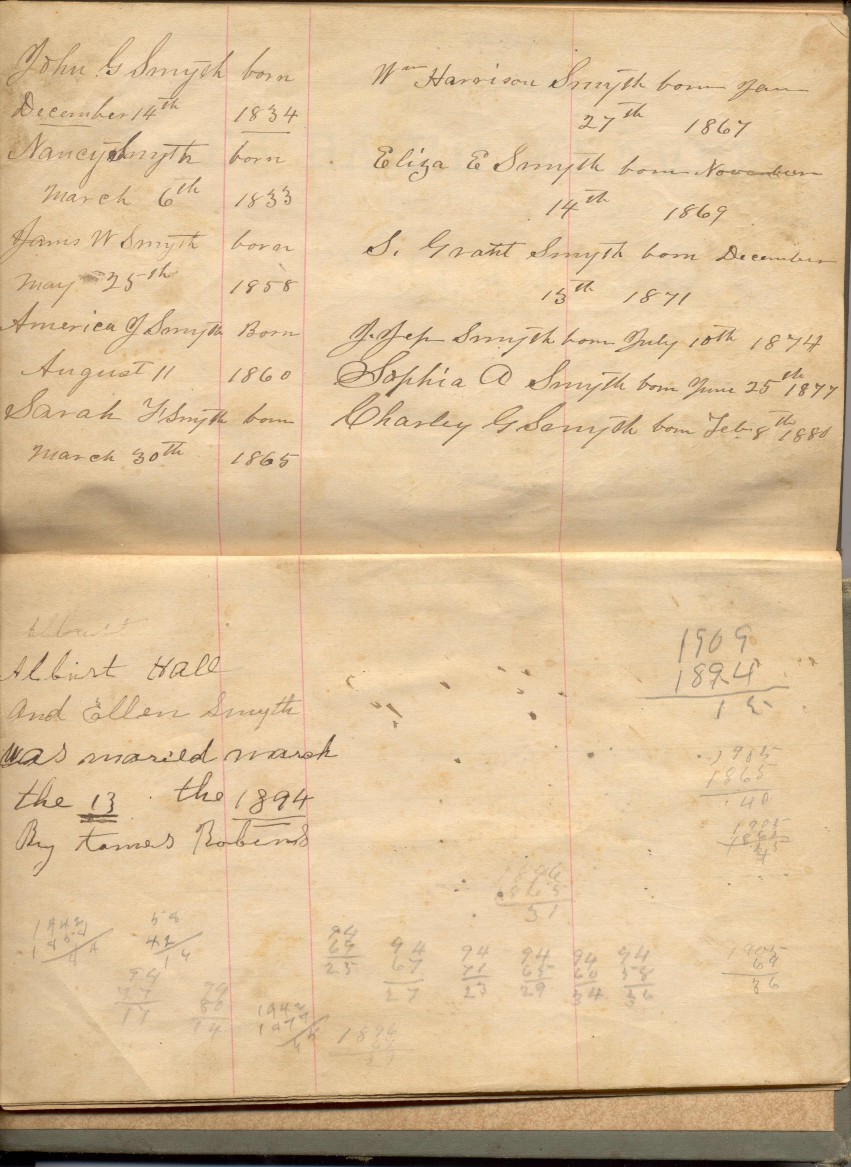 John G Smyth born
December 14th 1834
Nancy Smyth born
March 6th 1833
Jams W Smyth born
May 25th 1858
America J Smyth Born
August 11 1860
Sarah F Smyth born
March 30th 1865
Wm Harrison Smyth born Jan
27th 1867
Eliza E Smyth born November
14th 1869
S. Grant Smyth born December
13th 1871
J. Jep Smyth born July 10th 1874
Sophia A Smyth born June 25th 1877
Charley G Smyth born Feb 8th 1880
Albirt Hall
And Ellen Smyth
was maried march
the 13 the 1894
By James Robins
1909
1894
15
1905
1865
40
94
67
27
94
71
23
94
65
29
94
60
34
94
58
36